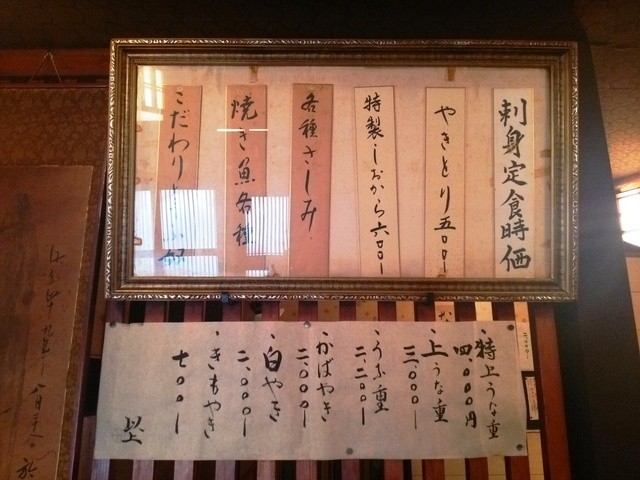 刺身定食時価
やきとり五〇〇ー
特製しおから六〇〇ー
各種さしみ
焼き魚各種
こだわり
・特上うな重
四.〇〇〇円
・上うな重
三.〇〇〇ー
・うな重
二.二〇〇ー
・かばやき
二.〇〇〇ー
・白やき
二.〇〇〇ー
・きもやき
七〇〇ー
以上